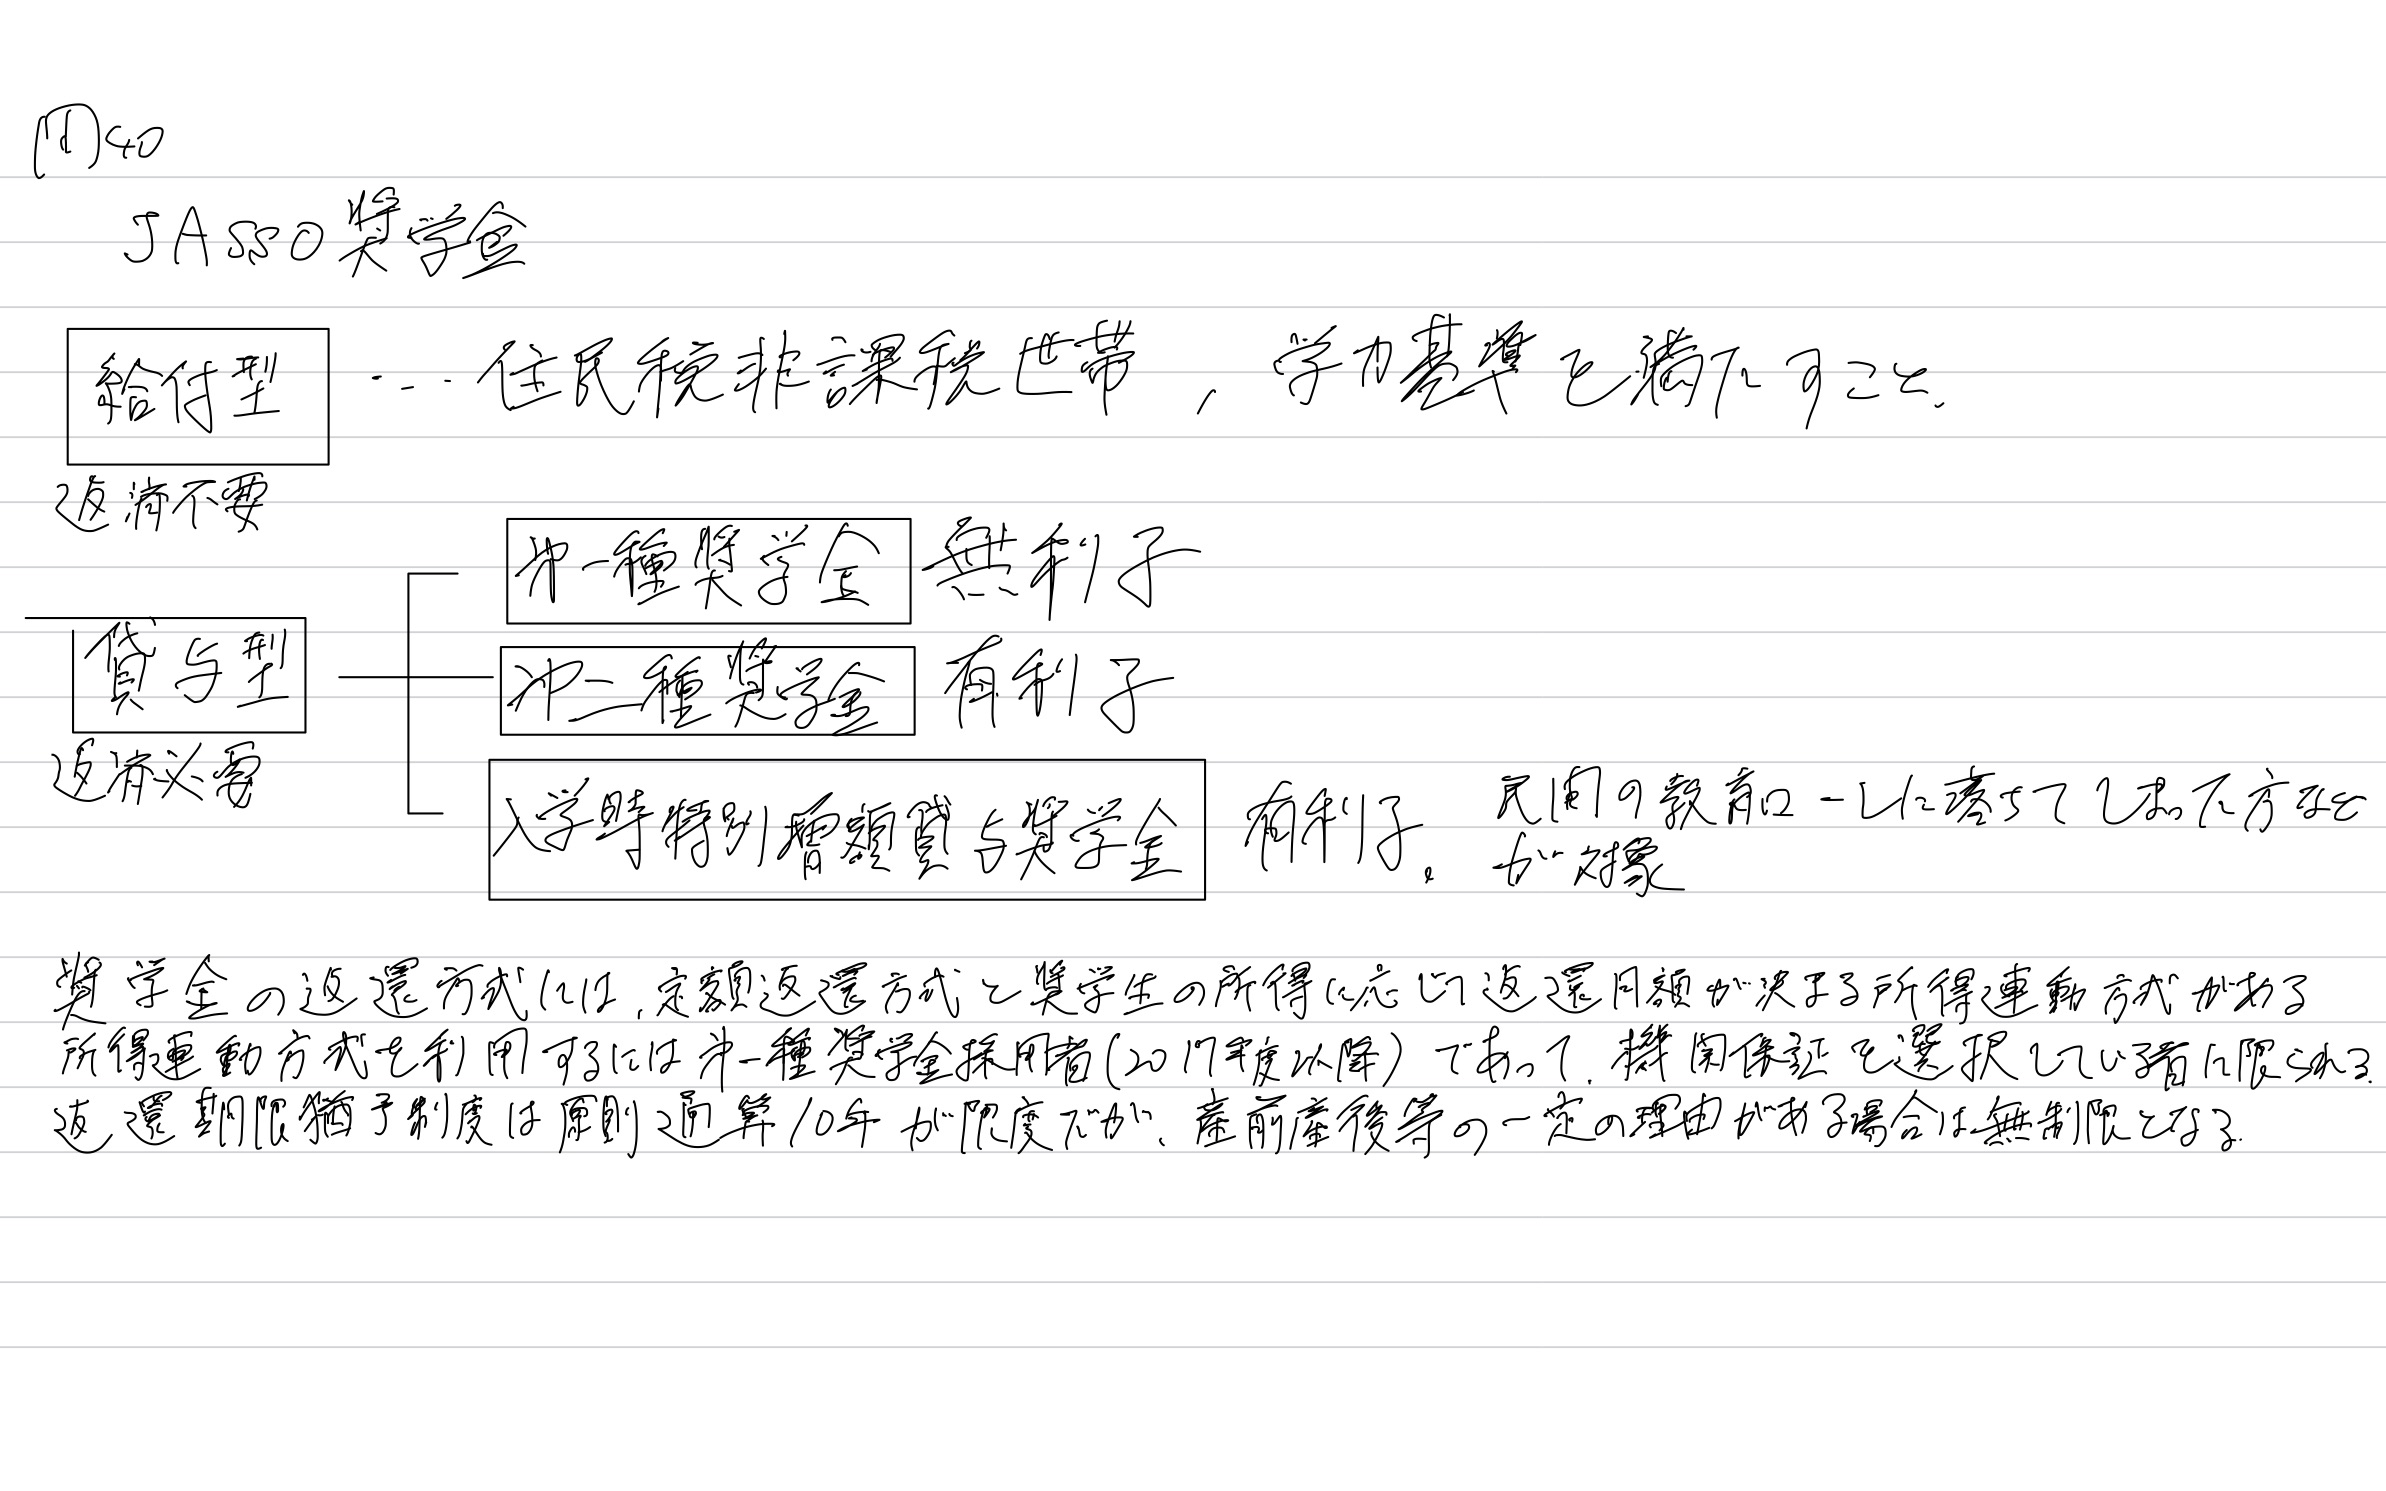 問40
JASSO奨学金
給付型 … 住民税非課税世帯，学力基準を満たすこと．
返済不要
第一種奨学金 無利子
貸与型
第二種奨学金 有利子
返済必要
入学時特別増額貸与奨学金 有利子。 民間の教育ローンに落ちてしまった方など
が対象
奨学金の返還方式には、定額返還方式と奨学生の所得に応じて返還月額が決まる所得連動方式がある
所得連動方式を利用するには第一種奨学金採用者(2017年度以降)であって、機関保証を選択している者に限られる．
返還期限猶予制度は原則通算10年が限度だが、産前産後等の一定の理由がある場合は無制限となる．